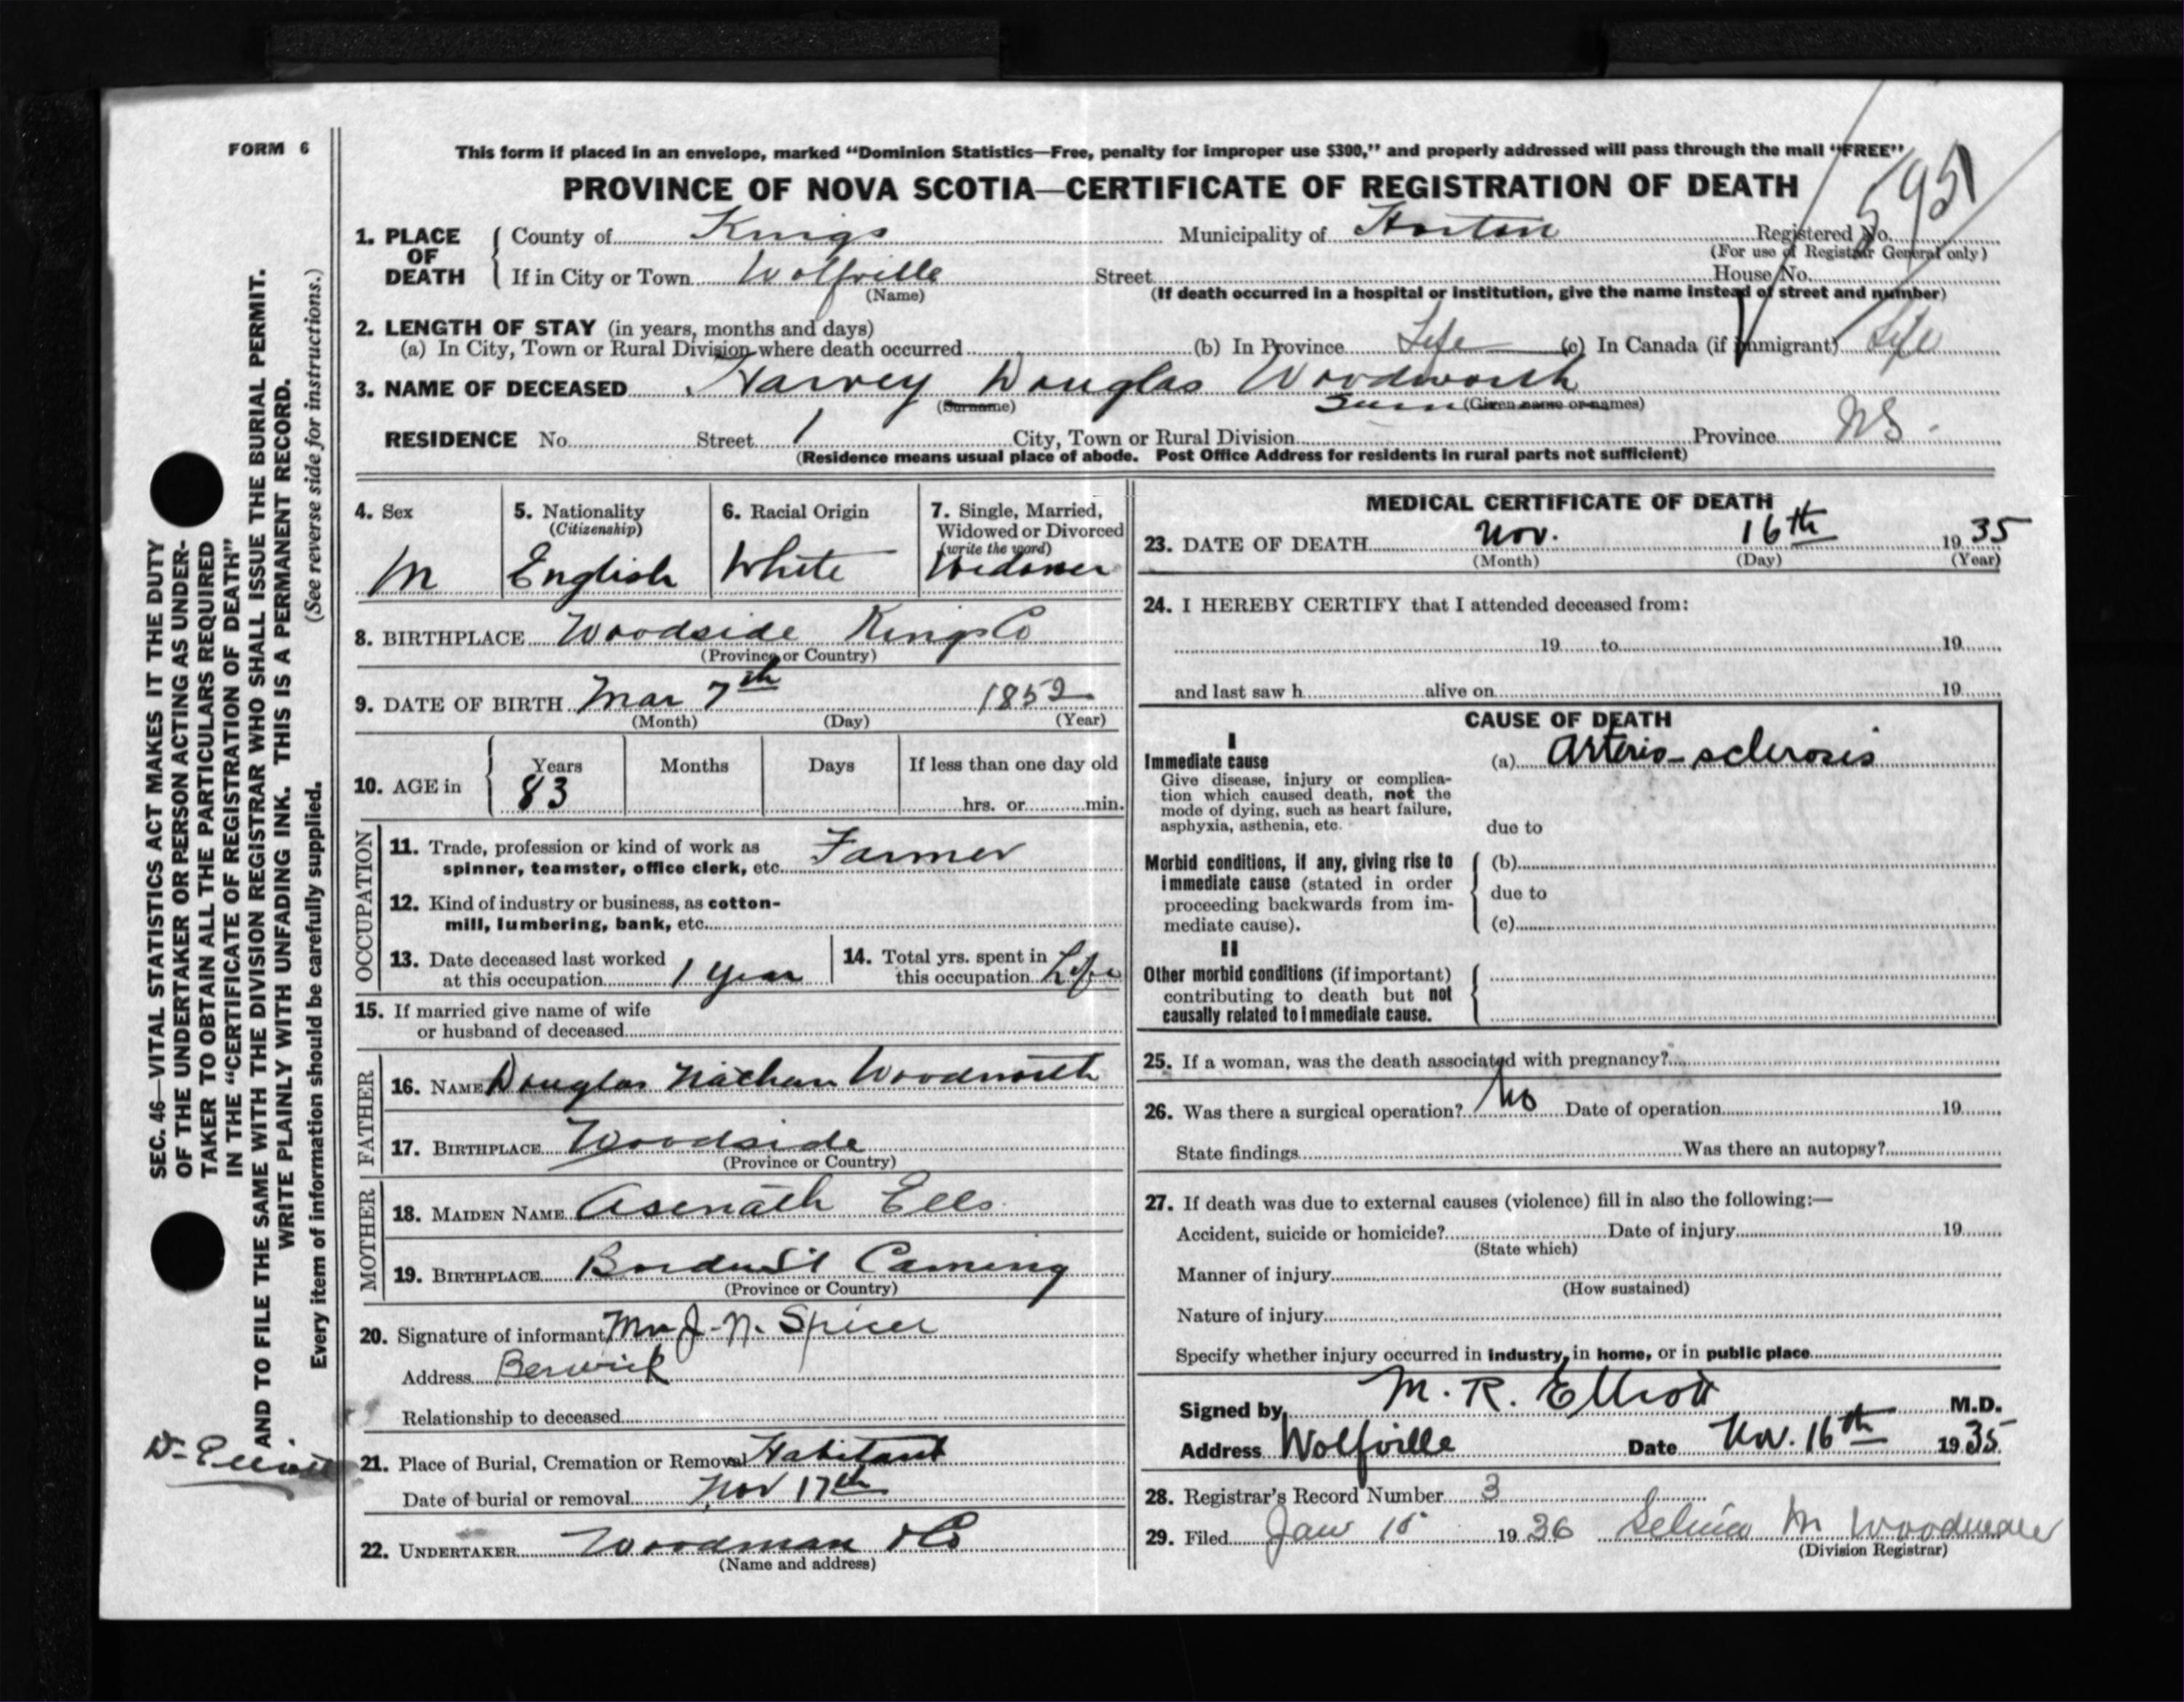 FORM 6
This form if placed in an envelope, marked “Dominion Statistics—Free, penalty for improper use $300,” and properly addressed will pass through the mail “FREE”
PROVINCE OF NOVA SCOTIA—CERTIFICATE OF REGISTRATION OF DEATH
5951
1. PLACE OF DEATH { County of Kings Municipality of Horton Registered No.
(For use of Registrar General only)
If in City or Town Wolfville Street House No.
(Name) (If death occurred in a hospital or institution, give the name instead of street and number)
2. LENGTH OF STAY (in years, months and days)
(a) In City, Town or Rural Division where death occurred (b) In Province Life (c) In Canada (if immigrant) Life
3. NAME OF DECEASED Harvey Douglas Woodworth
(Surname) (Given name or names)
RESIDENCE No. Street 1 City, Town or Rural Division Province NS.
(Residence means usual place of abode. Post Office Address for residents in rural parts not sufficient)
4. Sex
M
5. Nationality
(Citizenship)
English
6. Racial Origin
White
7. Single, Married,
Widowed or Divorced
(write the word)
Widower
8. BIRTHPLACE Woodside Kings Co
(Province or Country)
9. DATE OF BIRTH Mar 7th 1852
(Month) (Day) (Year)
10. AGE in { Years Months Days If less than one day old
83 hrs. or min.
OCCUPATION
11. Trade, profession or kind of work as
spinner, teamster, office clerk, etc. Farmer
12. Kind of industry or business, as cotton-
mill, lumbering, bank, etc.
13. Date deceased last worked
at this occupation 1 year
14. Total yrs. spent in
this occupation Life
15. If married give name of wife
or husband of deceased
FATHER
16. NAME Douglas Nathan Woodworth
17. BIRTHPLACE Woodside
(Province or Country)
MOTHER
18. MAIDEN NAME Asenath Eells
19. BIRTHPLACE St Canning
(Province or Country)
20. Signature of informant J. N. Spicer
Address Berwick
Relationship to deceased
21. Place of Burial, Cremation or Removal Habitant
Date of burial or removal Nov 17th
22. UNDERTAKER Woodman & Co
(Name and address)
MEDICAL CERTIFICATE OF DEATH
23. DATE OF DEATH Nov. 16th 1935
(Month) (Day) (Year)
24. I HEREBY CERTIFY that I attended deceased from:
19 to 19
and last saw h alive on 19
CAUSE OF DEATH
I
Immediate cause (a) Arterio-sclerosis
Give disease, injury or complica-
tion which caused death, not the
mode of dying, such as heart failure,
asphyxia, asthenia, etc. due to
Morbid conditions, if any, giving rise to { (b)
immediate cause (stated in order due to
proceeding backwards from im-
mediate cause). (c)
II
Other morbid conditions (if important) {
contributing to death but not
causally related to immediate cause.
25. If a woman, was the death associated with pregnancy?
26. Was there a surgical operation? No Date of operation 19
State findings Was there an autopsy?
27. If death was due to external causes (violence) fill in also the following:—
Accident, suicide or homicide? Date of injury 19
(State which)
Manner of injury
(How sustained)
Nature of injury
Specify whether injury occurred in industry, in home, or in public place
Signed by M. R. Elliott M.D.
Address Wolfville Date Nov. 16th 1935
28. Registrar's Record Number 3
29. Filed Jan 15 1936 Selina M Woodman
(Division Registrar)
SEC. 46—VITAL STATISTICS ACT MAKES IT THE DUTY
OF THE UNDERTAKER OR PERSON ACTING AS UNDER-
TAKER TO OBTAIN ALL THE PARTICULARS REQUIRED
IN THE “CERTIFICATE OF REGISTRATION OF DEATH”
AND TO FILE THE SAME WITH THE DIVISION REGISTRAR WHO SHALL ISSUE THE BURIAL PERMIT.
WRITE PLAINLY WITH UNFADING INK. THIS IS A PERMANENT RECORD.
Every item of information should be carefully supplied. (See reverse side for instructions.)
Dr Elliott